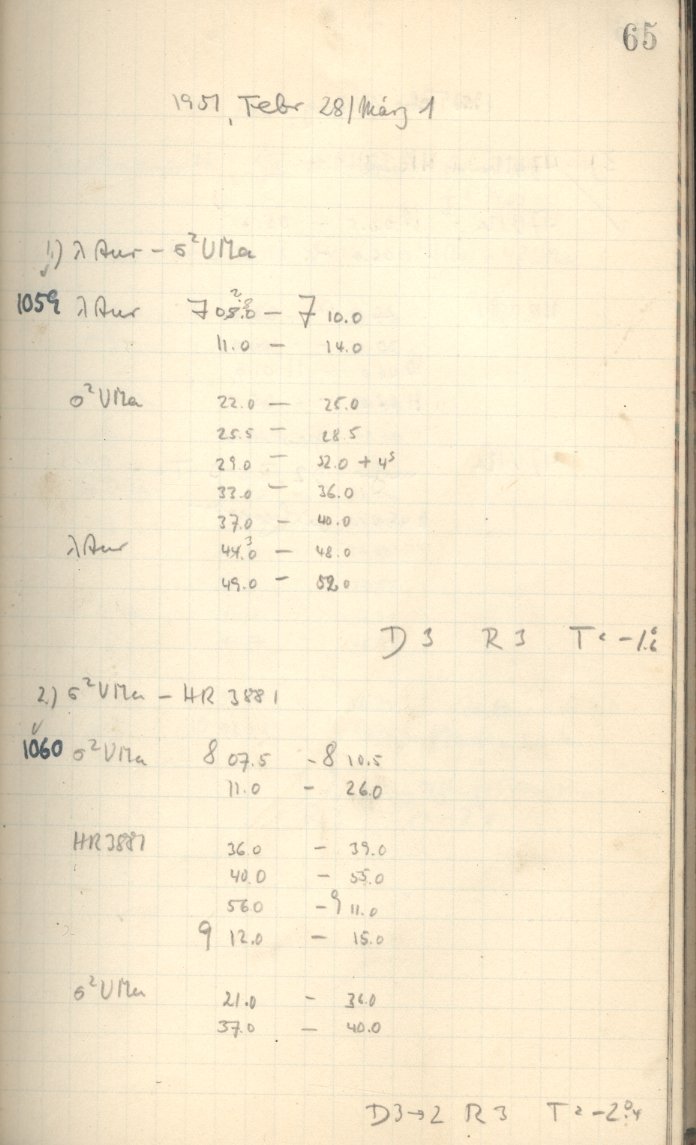 65
1951, Febr 28/März 1
1) λ Aur – σ² UMa
1059 λ Aur 7 – 7 10.0
11.0 – 14.0
σ² UMa 22.0 – 25.0
25.5 – 28.5
29.0 – 32.0 + 4ˢ
33.0 – 36.0
37.0 – 40.0
λ Aur – 48.0
49.0 – 52.0
D 3 R 3 T = –1.6
2) σ² UMa – HR 3881
1060 σ² UMa 8 07.5 – 8 10.5
11.0 – 26.0
HR 3881 36.0 – 39.0
40.0 – 55.0
56.0 – 9 11.0
9 12.0 – 15.0
σ² UMa 21.0 – 36.0
37.0 – 40.0
D 3→2 R 3 T = –2.4